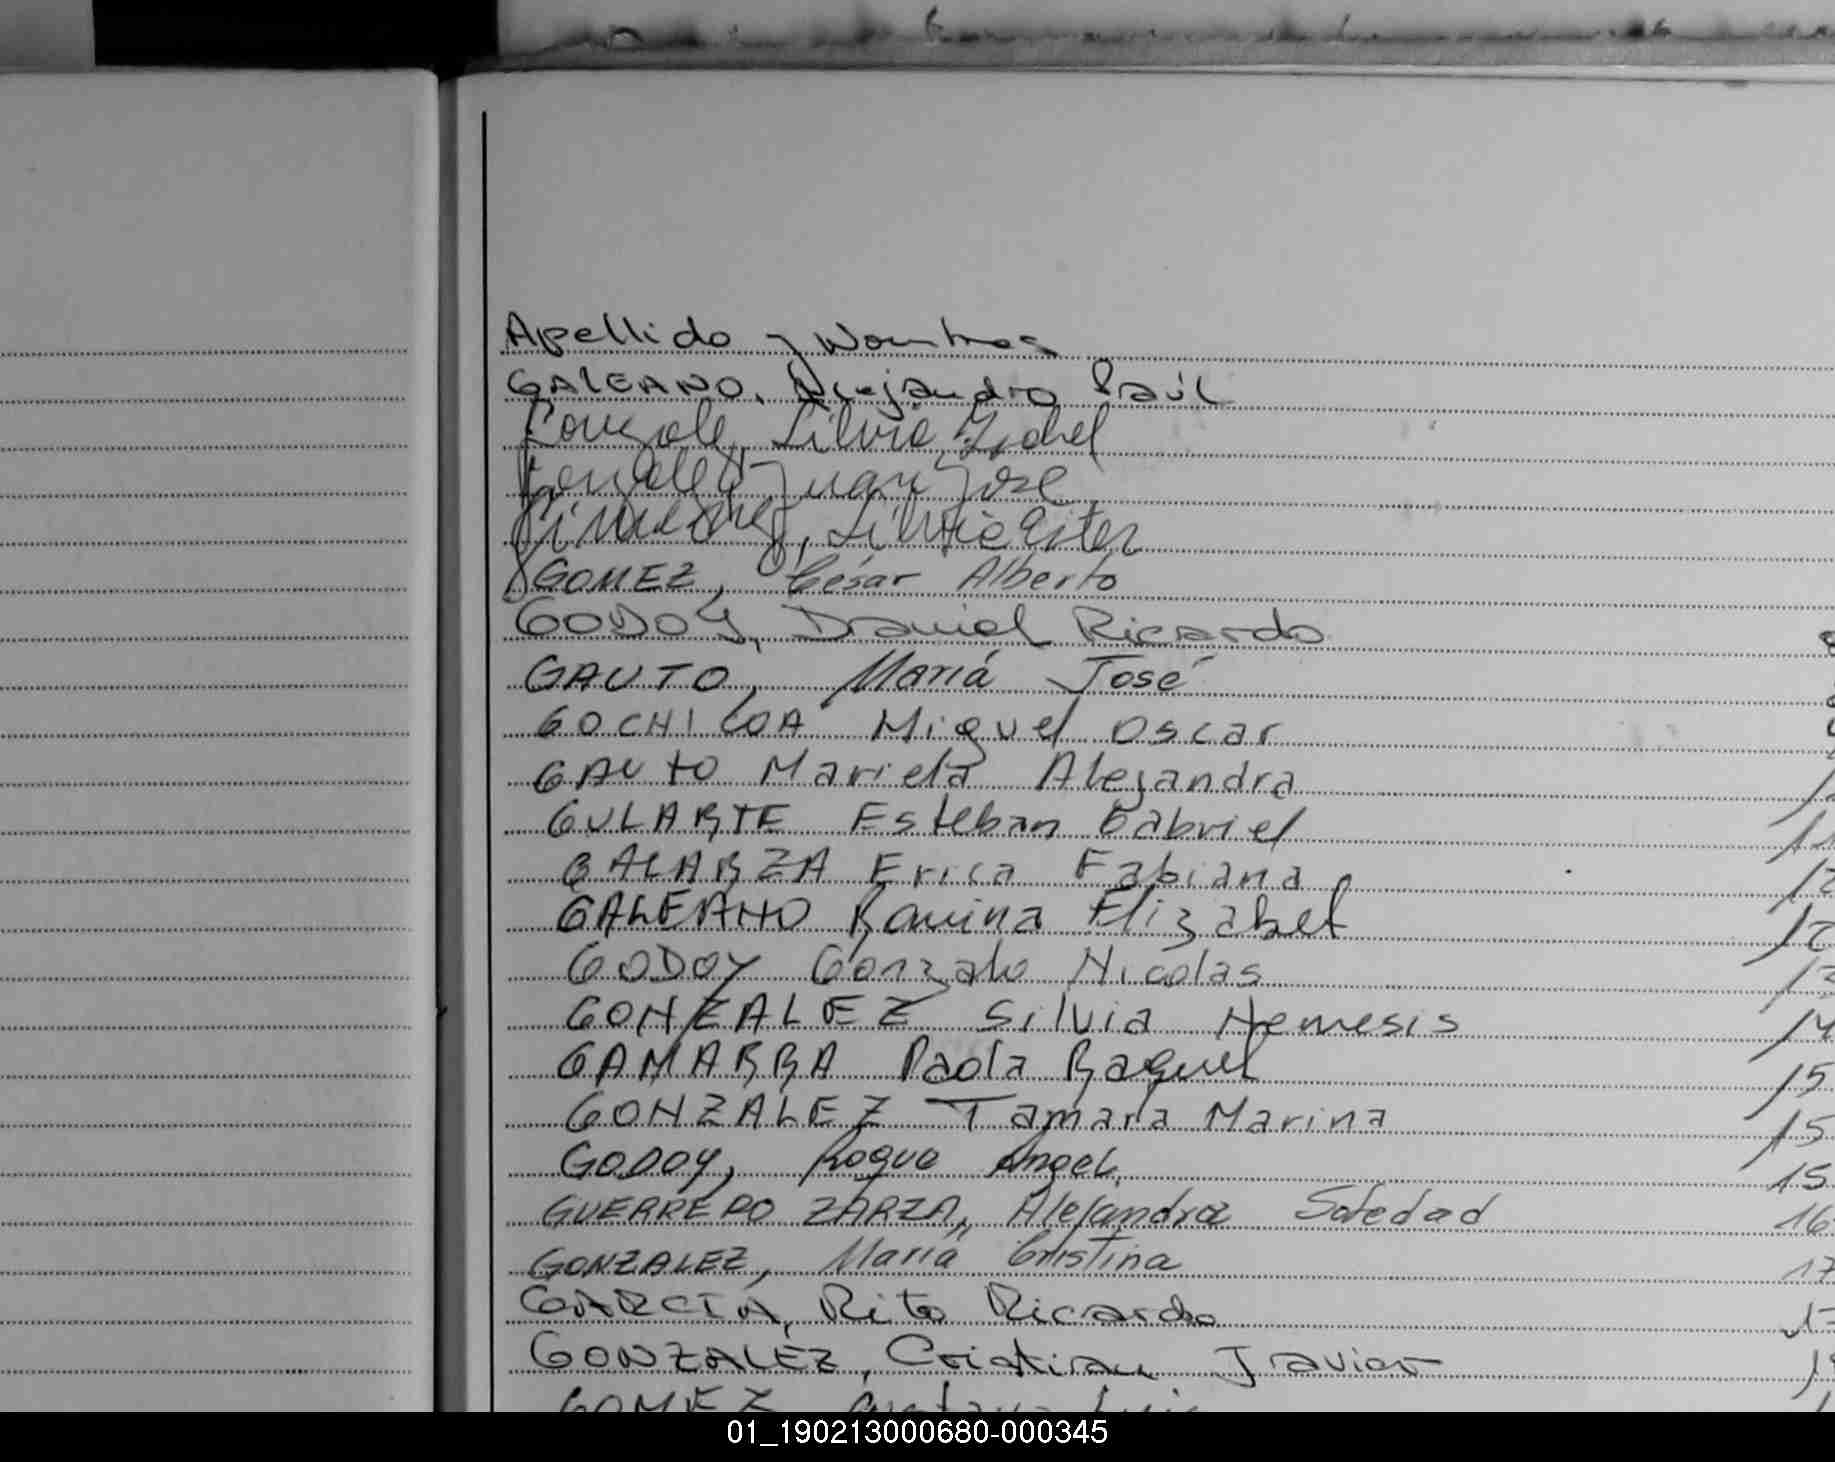 Apellido y Nombres
GALEANO, Alejandro Saúl
Gonzale, Silvia Isabel
Gonzalez, Juan José
Gimenez, Silvia Ester
GOMEZ, César Alberto
GODOY, Daniel Ricardo
GAUTO, María José
GOCHICOA Miguel Oscar
GAUTO Mariela Alejandra
GULARTE Esteban Gabriel
11
GALARZA Erica Fabiana
12
GALEANO Romina Elizabet
12
GODOY Gonzalo Nicolas
13
GONZALEZ Silvia Nemesis
14
GAMARRA Paola Raquel
15
GONZALEZ Tamara Marina
15
GODOY, Roque Angel
15
GUERRERO ZARZA, Alejandra Soledad
16
GONZALEZ, María Cristina
17
GARCIA, Rito Ricardo
GONZALEZ, Cristian Javier
GOMEZ
01_190213000680-000345